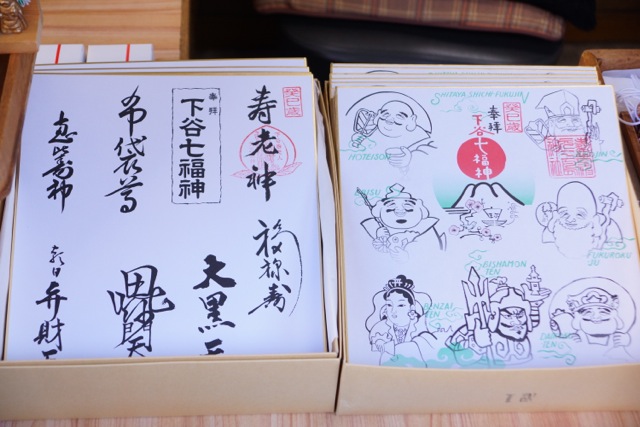 癸巳歳
寿老神
福禄寿
奉拝
下谷七福神
大黒天
布袋尊
毘沙門天
寿神
朝日弁財天
SHITAYA SHICHI-FUKUJIN
癸巳歳
奉拝
下谷七福神
HOTEISON
FUKUROKU
JU
BISHAMON
TEN
BENZAI
TEN